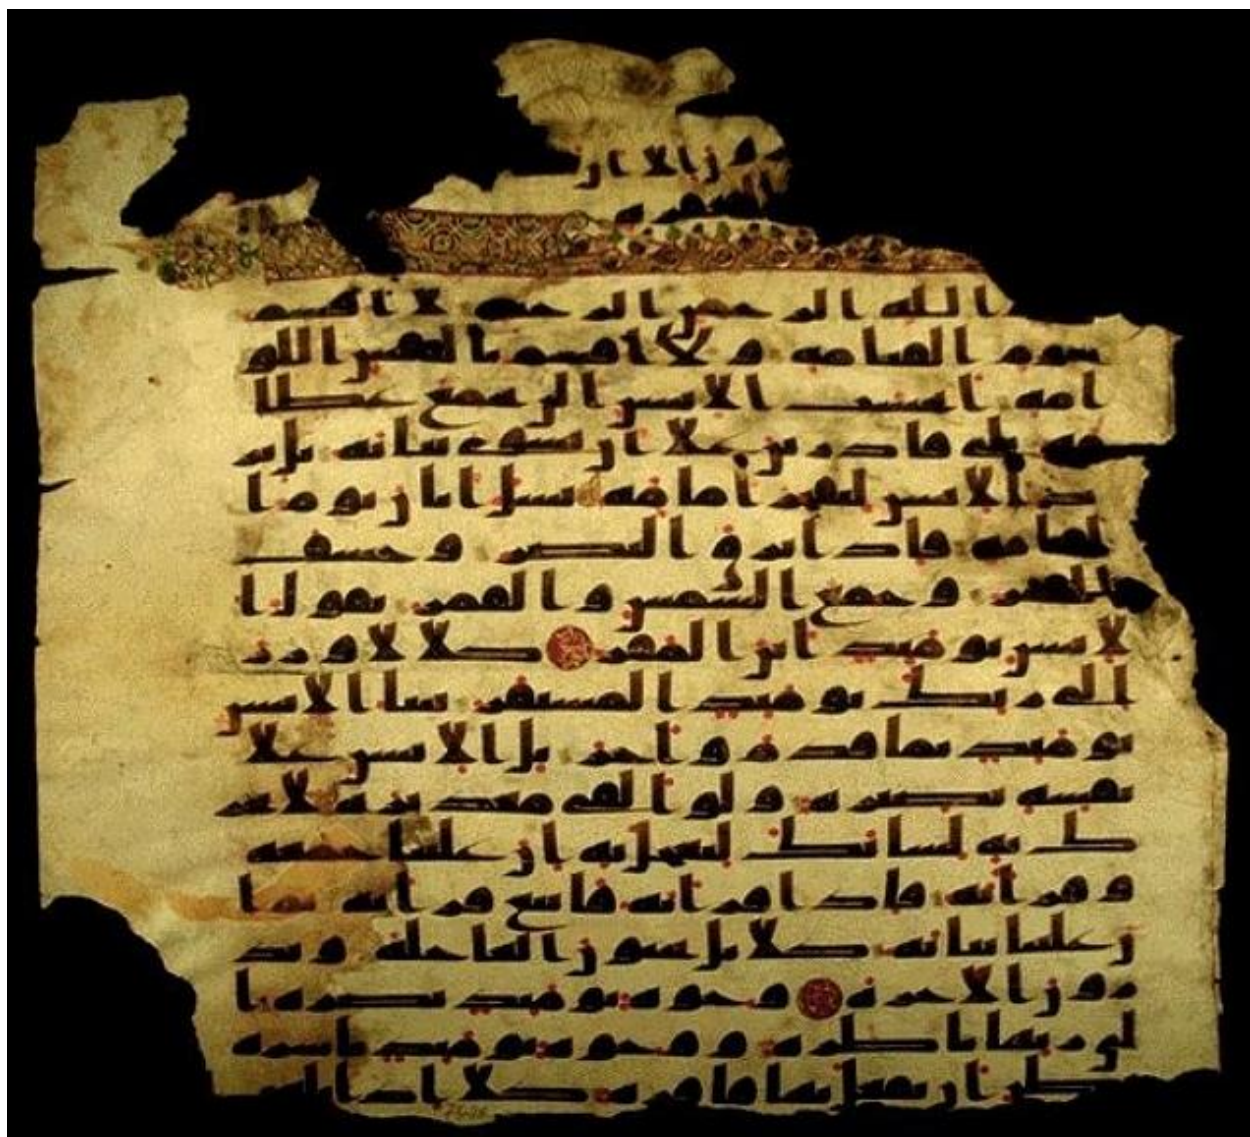 ون الا ان
الله الرحمن الرحيم لا اقسم
بيوم القيامه ولا اقسم بالنفس اللو
امه ايحسب الانسن الن نجمع عظا
مه بلى قادرين على ان نسوي بنانه بل ير
يد الانسن ليفجر امامه يسل ايان يوم ا
لقيامه فاذا برق البصر وخسف
القمر وجمع الشمس والقمر يقول ا
لانسن يومئذ اين المفر كلا لا وزر
الى ربك يومئذ المستقر ينبا الانسن
يومئذ بما قدم واخر بل الانسن على
نفسه بصيره ولو القى معذيره لا تحر
ك به لسانك لتعجل به ان علينا جمعه
وقرانه فاذا قرانه فاتبع قرانه ثم ا
ن علينا بيانه كلا بل تحبون العاجله وتذ
رون الاخره وجوه يومئذ ناضره ا
لى ربها ناظره ووجوه يومئذ باسره
تظن ان يفعل بها فاقره كلا اذا